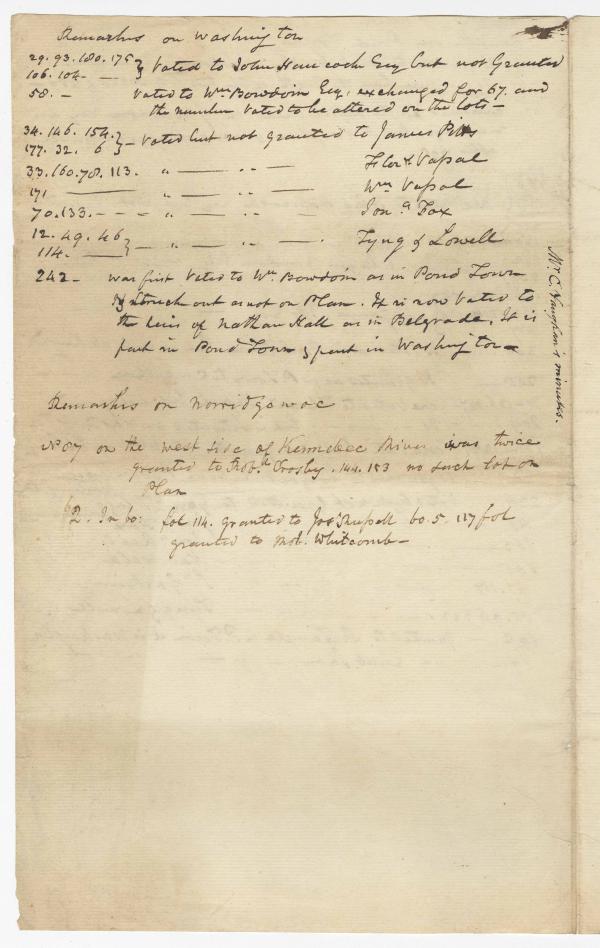 Remarks on Washington
29. 93. 180. 175
106. 104. — — } Voted to John Hancock Esq but not Granted
58. — Voted to Wm Bowdoin Esq. exchanged for 67. and
the number Voted to be altered on the lots —
34. 146. 154. } — Voted but not granted to James Pitts
177. 32. 6
33. 160. 78. 113. " — " — Flor Vassal
171 — " — " — Wm Vassal
70. 133. — — " — " — Jona Fox
12. 49. 46 } — " — " — Tyng & Lowell
114. —
242 — was first Voted to Wm Bowdoin as in Pond Town
& struck out as not on Plan. It is now Voted to
the heirs of Nathan Hall as in Belgrade. It is
part in Pond Town & part in Washington —
Remarks on Norridgewoc
No 87 on the west side of Kennebec River was twice
granted to Crosby. 144. 153 no such lot on
Plan
62. In bo: fol 114. granted to Jos Russell bo. 5. 117 fol
granted to Whitcomb —
Mr. C. Vaughan's minutes.